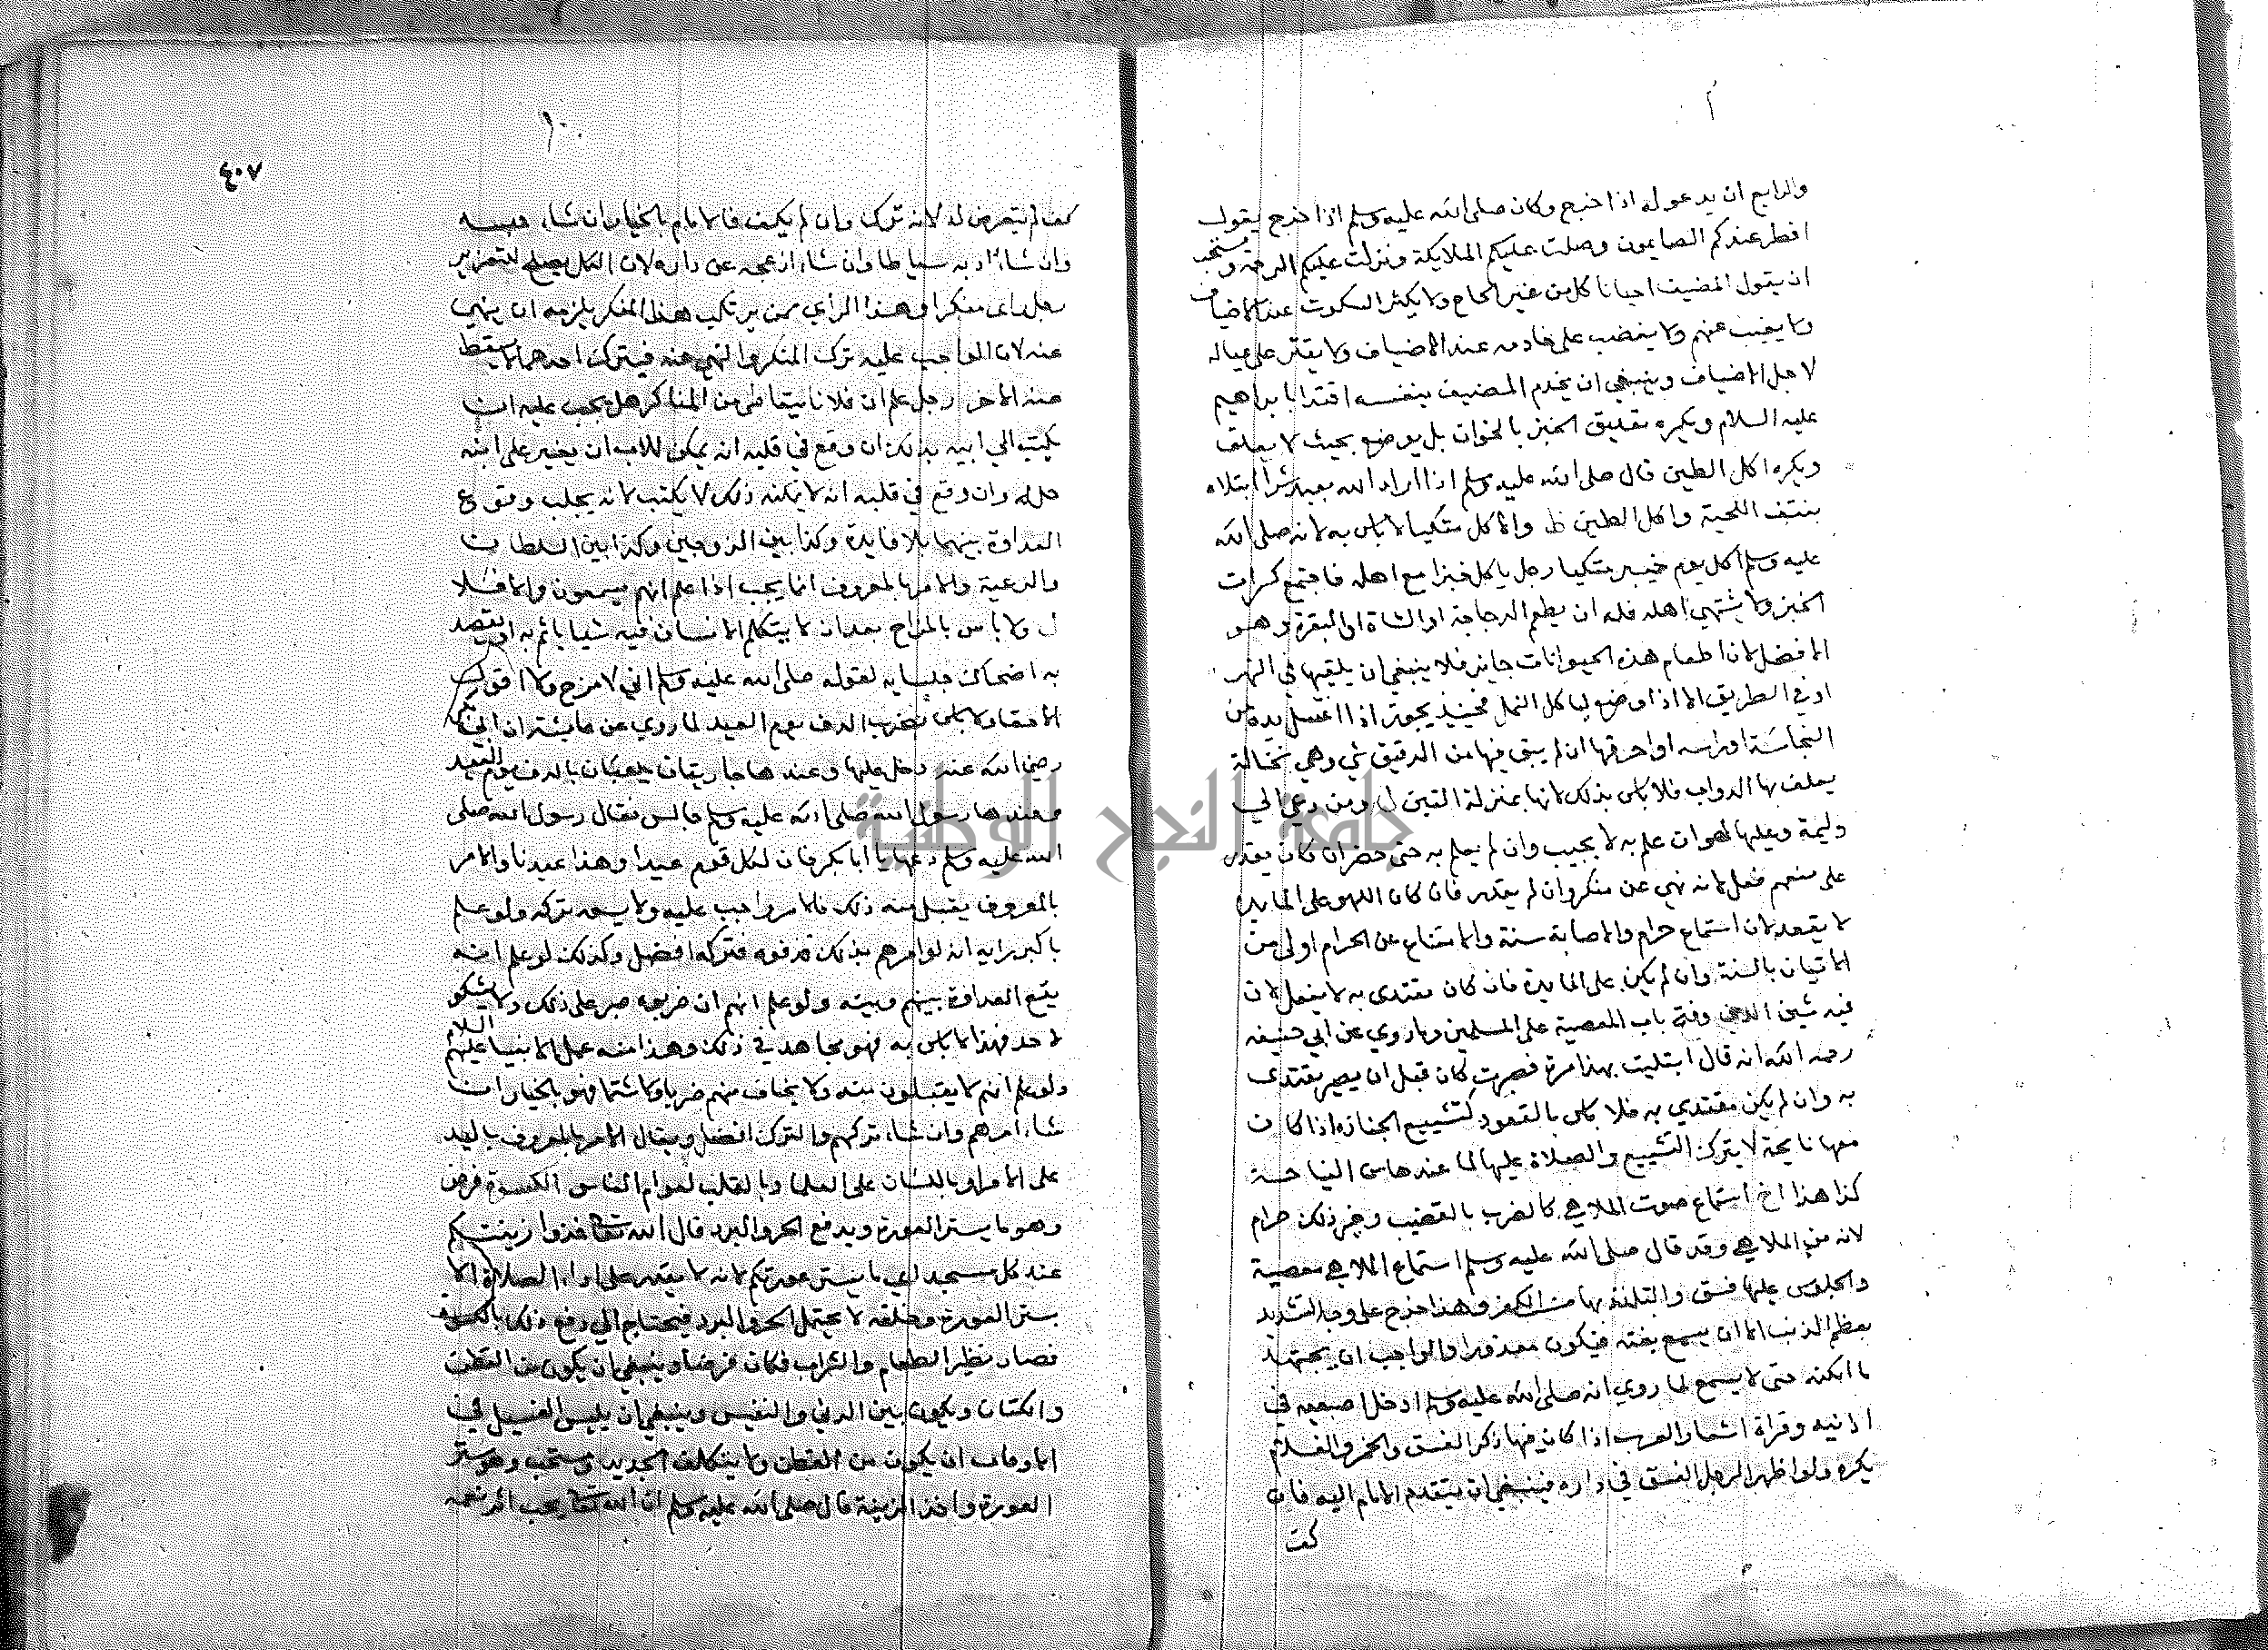 والرابع ان يدعو له اذا خرج وكان صلى الله عليه وسلم اذا خرج يقول
افطر عندكم الصايمون وصلت عليكم الملايكة ونزلت عليكم الرحمة ويستحب
ان يقول المضيف احيانا كل من غير الحاح ولا يكثر السكوت عند الاضياف
ولا يغيب عنهم ولا يغضب على خادمه عند الاضياف ولا يقتر على عياله
لاجل الاضياف وينبغي ان يخدم المضيف بنفسه اقتدا بابراهيم
عليه السلام ويكره تعليق الخبز بالخوان بل يوضع بحيث لا يعلق
ويكره اكل الطين قال صلى الله عليه وسلم اذا اراد الله بعبد شرا ابتلاه
بنتف اللحية واكل الطين ظ والاكل متكيا لا باس به لانه صلى الله
عليه وسلم اكل يوم خيبر متكيا رجل ياكل خبزا مع اهله فاجتمع كسرات
الخبز ولا يشتهي اهله فله ان يطعم الدجاجة او الشاة او البقرة وهو
الافضل لان اطعام هذه الحيوانات جايز فلا ينبغي ان يلقيها في النهر
او في الطريق الا اذا وضع لياكل النمل فحينيذ يجوز اذا اغتسل يده من
النجاسة او راسه او احرقها ان لم يبق فيها من الدقيق شي وهي نخالة
يعلف بها الدواب فلا باس بذلك لانها بمنزلة التبن ل ومن دعي الي
وليمة وعليها لهو ان علم به لا يجيب وان لم يعلم به حتى حضر ان كان يقدر
على منعهم فعل لانه نهي عن منكر وان لم يقدر فان كان اللهو على المايدة
لا يقعد لان استماع حرام والاصابة سنة والامتناع عن الحرام اولى من
الاتيان بالسنة وان لم يكن على المايدة فان كان مقتدى به لا يفعل لان
فيه شين الدين وفتح باب المعصية على المسلمين وما روي عن ابي حنيفه
رحمه الله انه قال ابتليت بهذا مرة فصبرت كان قبل ان يصير مقتدى
به وان لم يكن مقتدي به فلا باس بالقعود كتشييع الجنازه اذا كان
معها نايحة لا يترك التشييع والصلاة عليها لما عندها من النياحة
كذا هذا اخ استماع صوت الملاهي كالضرب بالقضيب وغير ذلك حرام
لانه من الملاهي وقد قال صلى الله عليه وسلم استماع الملاهي معصية
والجلوس عليها فسق والتلذذ بها من الكفر وهذا خرج على وجه التشديد
بعظم الذنب الا ان يسمع بغتة فيكون معذورا والواجب ان يجتهد
ما امكنه حتى لا يسمع لما روي انه صلى الله عليه وسلم ادخل اصبعيه في
اذنيه وقراة اشعار العرب اذا كان فيها ذكر الفسق والخمر والغلام
يكره ولو اظهر الرجل الفسق في داره فينبغي ان يتقدم الامام اليه فان
كف
٤٠٧
كف لم يتعرض له لانه ترك وان لم يكف فالامام بالخيار ان شاء حبسه
وان شاء ادبه سياطا وان شاء ازعجه عن داره لان الكل يصلح للتعزير
رجل راى منكرا وهذا الراي ممن يرتكب هذا المنكر يلزمه ان ينهي
عنه لان الواجب عليه ترك المنكر والنهي عنه فبترك احدهما لا يسقط
عنه الاخر رجل علم ان فلانا يتعاطى من المناكر هل يجب عليه ان
يكتب الي ابيه بذلك ان وقع في قلبه انه يمكن للاب ان يغير على ابنه
حل له وان وقع في قلبه انه لا يمكنه ذلك لا يكتب لانه يجلب وقوع
العداوة بينهما بلا فايدة وكذا بين الزوجين وكذا بين السلطان
والرعية والامر بالمعروف انما يجب اذا علم انهم يسمعون والا فلا
ل ولا باس بالمزاح بعد ان لا يتكلم الانسان فيه شيا ياثم به او يقصد
به اضحاك جلسايه لقوله صلى الله عليه وسلم اني لامزح ولا اقول
الا حقا ولا باس بضرب الدف يوم العيد لما روي عن عايشة ان ابي بكر
رضي الله عنه دخل عليها وعندها جاريتان يلعبان بالدف يوم العيد
وعندها رسول الله صلى الله عليه وسلم جالس فقال رسول الله صلى
الله عليه وسلم دعها يا ابا بكر فان لكل قوم عيدا وهذا عيدنا والامر
بالمعروف يقبل منه ذلك فالامر واجب عليه ولا يسعه تركه ولو علم
باكبر رايه انه لو امرهم بذلك قذفوه فتركه افضل وكذلك لو علم انه
يقع العداوة بينهم وبينه ولو علم انهم ان ضربوه صبر على ذلك ولا يشكو
لاحد فهذا لا باس به فهو مجاهد في ذلك وهذا منه عمل الانبيا عليهم السلام
ولو علم انهم لا يقبلون منه ولا يخاف منهم ضربا ولا شتما فهو بالخيار ان
شاء امرهم وان شاء تركهم والترك افضل ويقال الامر بالمعروف باليد
على الامرا وباللسان على العلما وبالقلب لعوام الناس الكسوة فرض
وهو ما يستر العورة ويدفع الحر والبرد قال الله تعا خذوا زينتكم
عند كل مسجد اي ما يستر عورتكم لانه لا يقدر على اداء الصلاة الا
بستر العورة وخلقه لا يحتمل الحر والبرد فيحتاج الي دفع ذلك بالكسوة
فصار نظير الطعام والشراب فكان فرضا وينبغي ان يكون من القطن
والكتان ويكون بين الدني والنفيس وينبغي ان يلبس الغسيل في
الاوقات ان يكون من القطن ولا يتكلف الجديد ومستحب وهو ستر
العورة واخذ الزينة قال صلى الله عليه وسلم ان الله تعا يحب اثر نعمه
جامعة النجاح الوطنية